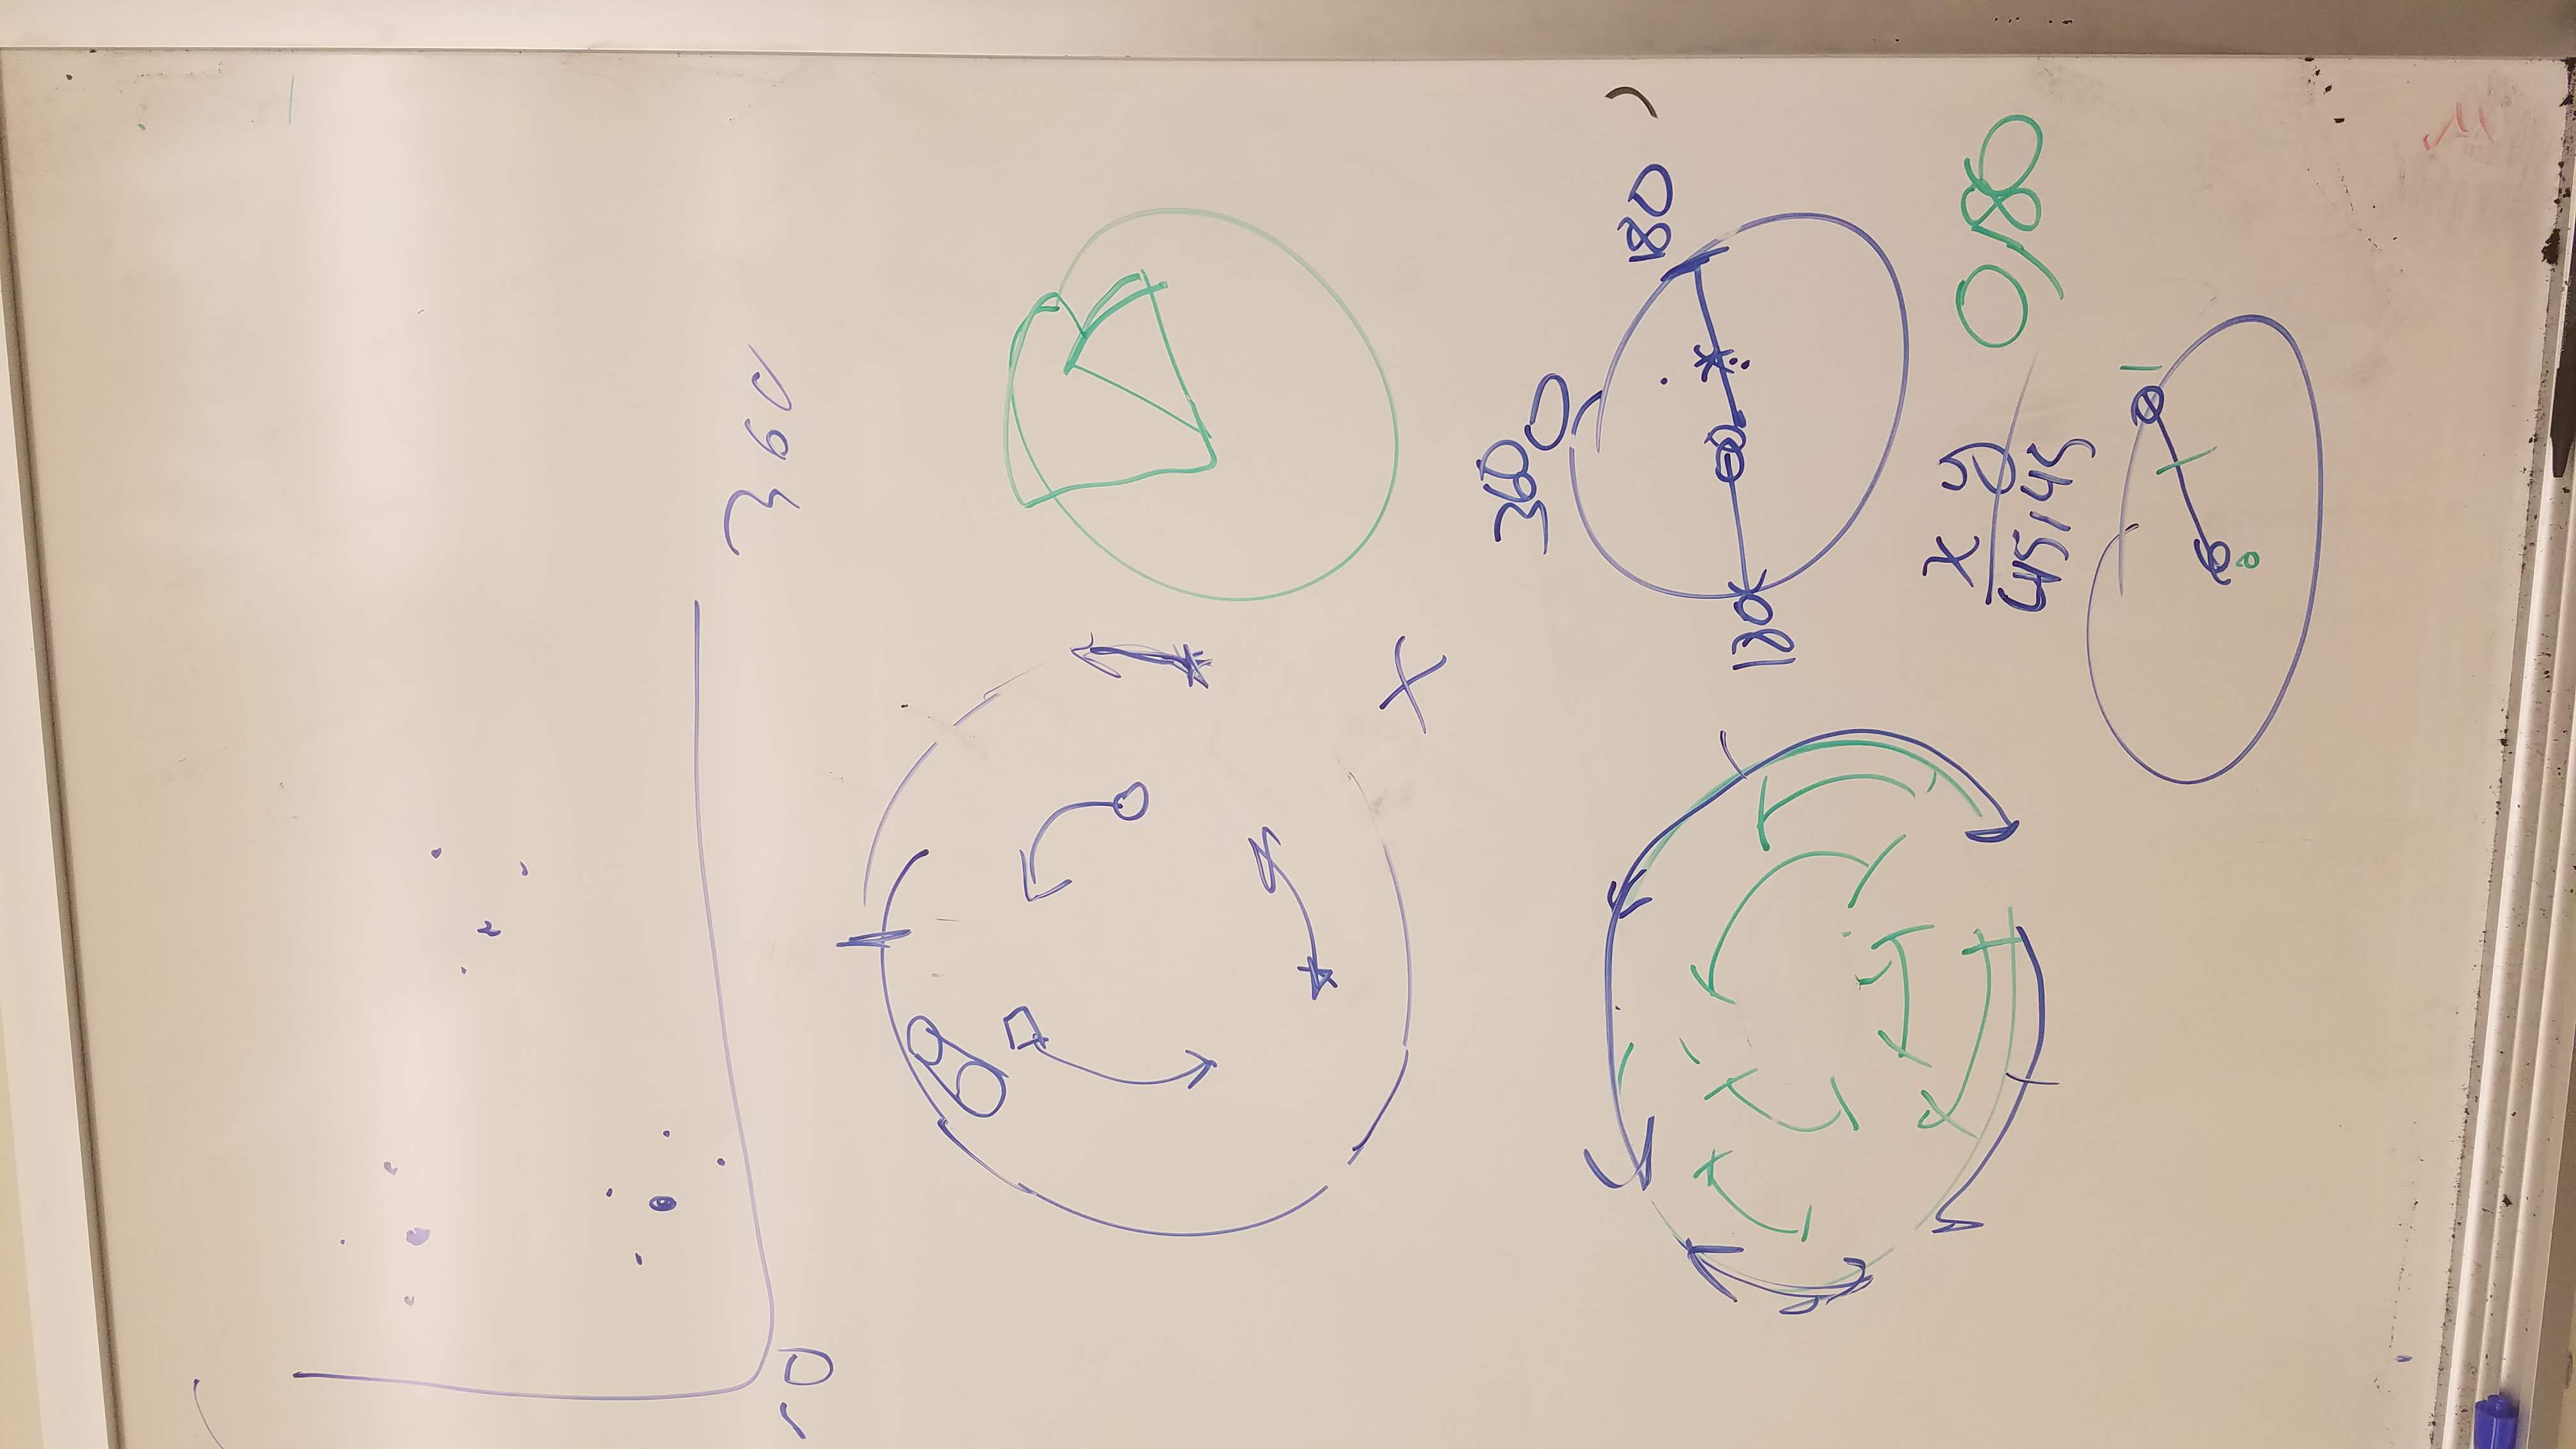 0
360
X
360
0
180
180
x y
45,45
0,180
1
0